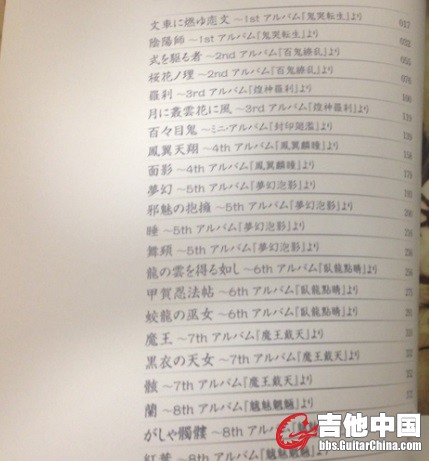 文車に燃ゆ恋文 ~1st アルバム「鬼哭転生」より 017
陰陽師 ~1st アルバム「鬼哭転生」より 032
式を駆る者 ~2nd アルバム「百鬼繚乱」より 055
桜花ノ理 ~2nd アルバム「百鬼繚乱」より 076
羅刹 ~3rd アルバム「煌神羅刹」より 106
月に叢雲花に風 ~3rd アルバム「煌神羅刹」より 119
百々目鬼 ~ミニアルバム「封印廻濫」より
鳳翼天翔 ~4th アルバム「鳳翼麟瞳」より 158
面影 ~4th アルバム「鳳翼麟瞳」より
夢幻 ~5th アルバム「夢幻泡影」より
邪魅の抱擁 ~5th アルバム「夢幻泡影」より
睡 ~5th アルバム「夢幻泡影」より
舞頚 ~5th アルバム「夢幻泡影」より
龍の雲を得る如し ~6th アルバム「臥龍點睛」より
甲賀忍法帖 ~6th アルバム「臥龍點睛」より
蛟龍の巫女 ~6th アルバム「臥龍點睛」より
魔王 ~7th アルバム「魔王戴天」より
黒衣の天女 ~7th アルバム「魔王戴天」より
骸 ~7th アルバム「魔王戴天」より
蘭 ~8th アルバム「魑魅魍魎」より
がしゃ髑髏 ~8th アルバム「魑魅魍魎」より
紅葉 ~8th アルバム「魑魅魍魎」より
吉他中国
bbs.GuitarChina.com